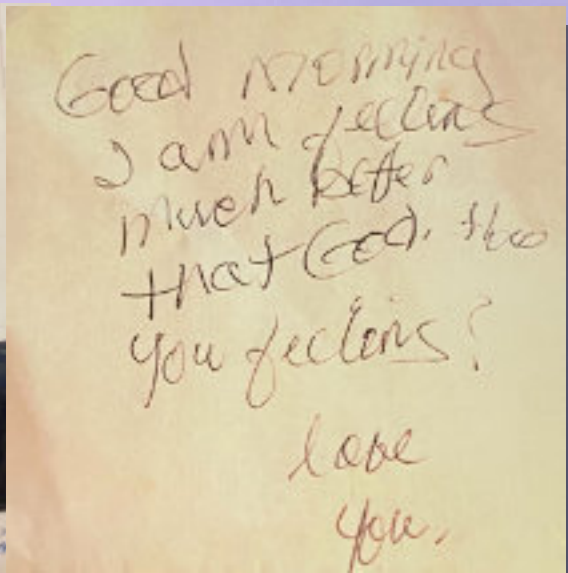 Good Morning
I am feeling
much better
that God. How
you feeling?
love
you.